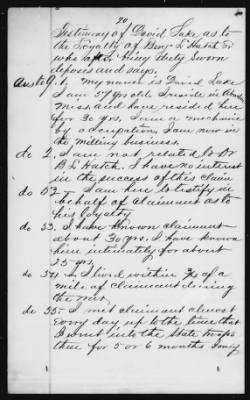 20
Testimony of David Lake as to
the Loyalty of Benj L Hatch Dr
who after being duly sworn
deposes and says.
Ans to 1. My name is David Lake
I am 57 yrs old. I reside in
Miss and have resided here
for 30 yrs. I am a mechanic
by occupation, I am now in
the milling business.
do 2. I am not related to Dr
B L Hatch. I have no interest
in the success of this claim
do 52 - I am here to testify in
behalf of claimant as to
his loyalty
do 53. I have known claimant
about 30 yrs. I have known
him intimately for about
25 yrs.
do 54 - I lived within ½ of a
mile of claimant during
the war.
do 55 - I met claimant almost
every day up to the time that
I went into the State troops
then for 5 or 6 months I only